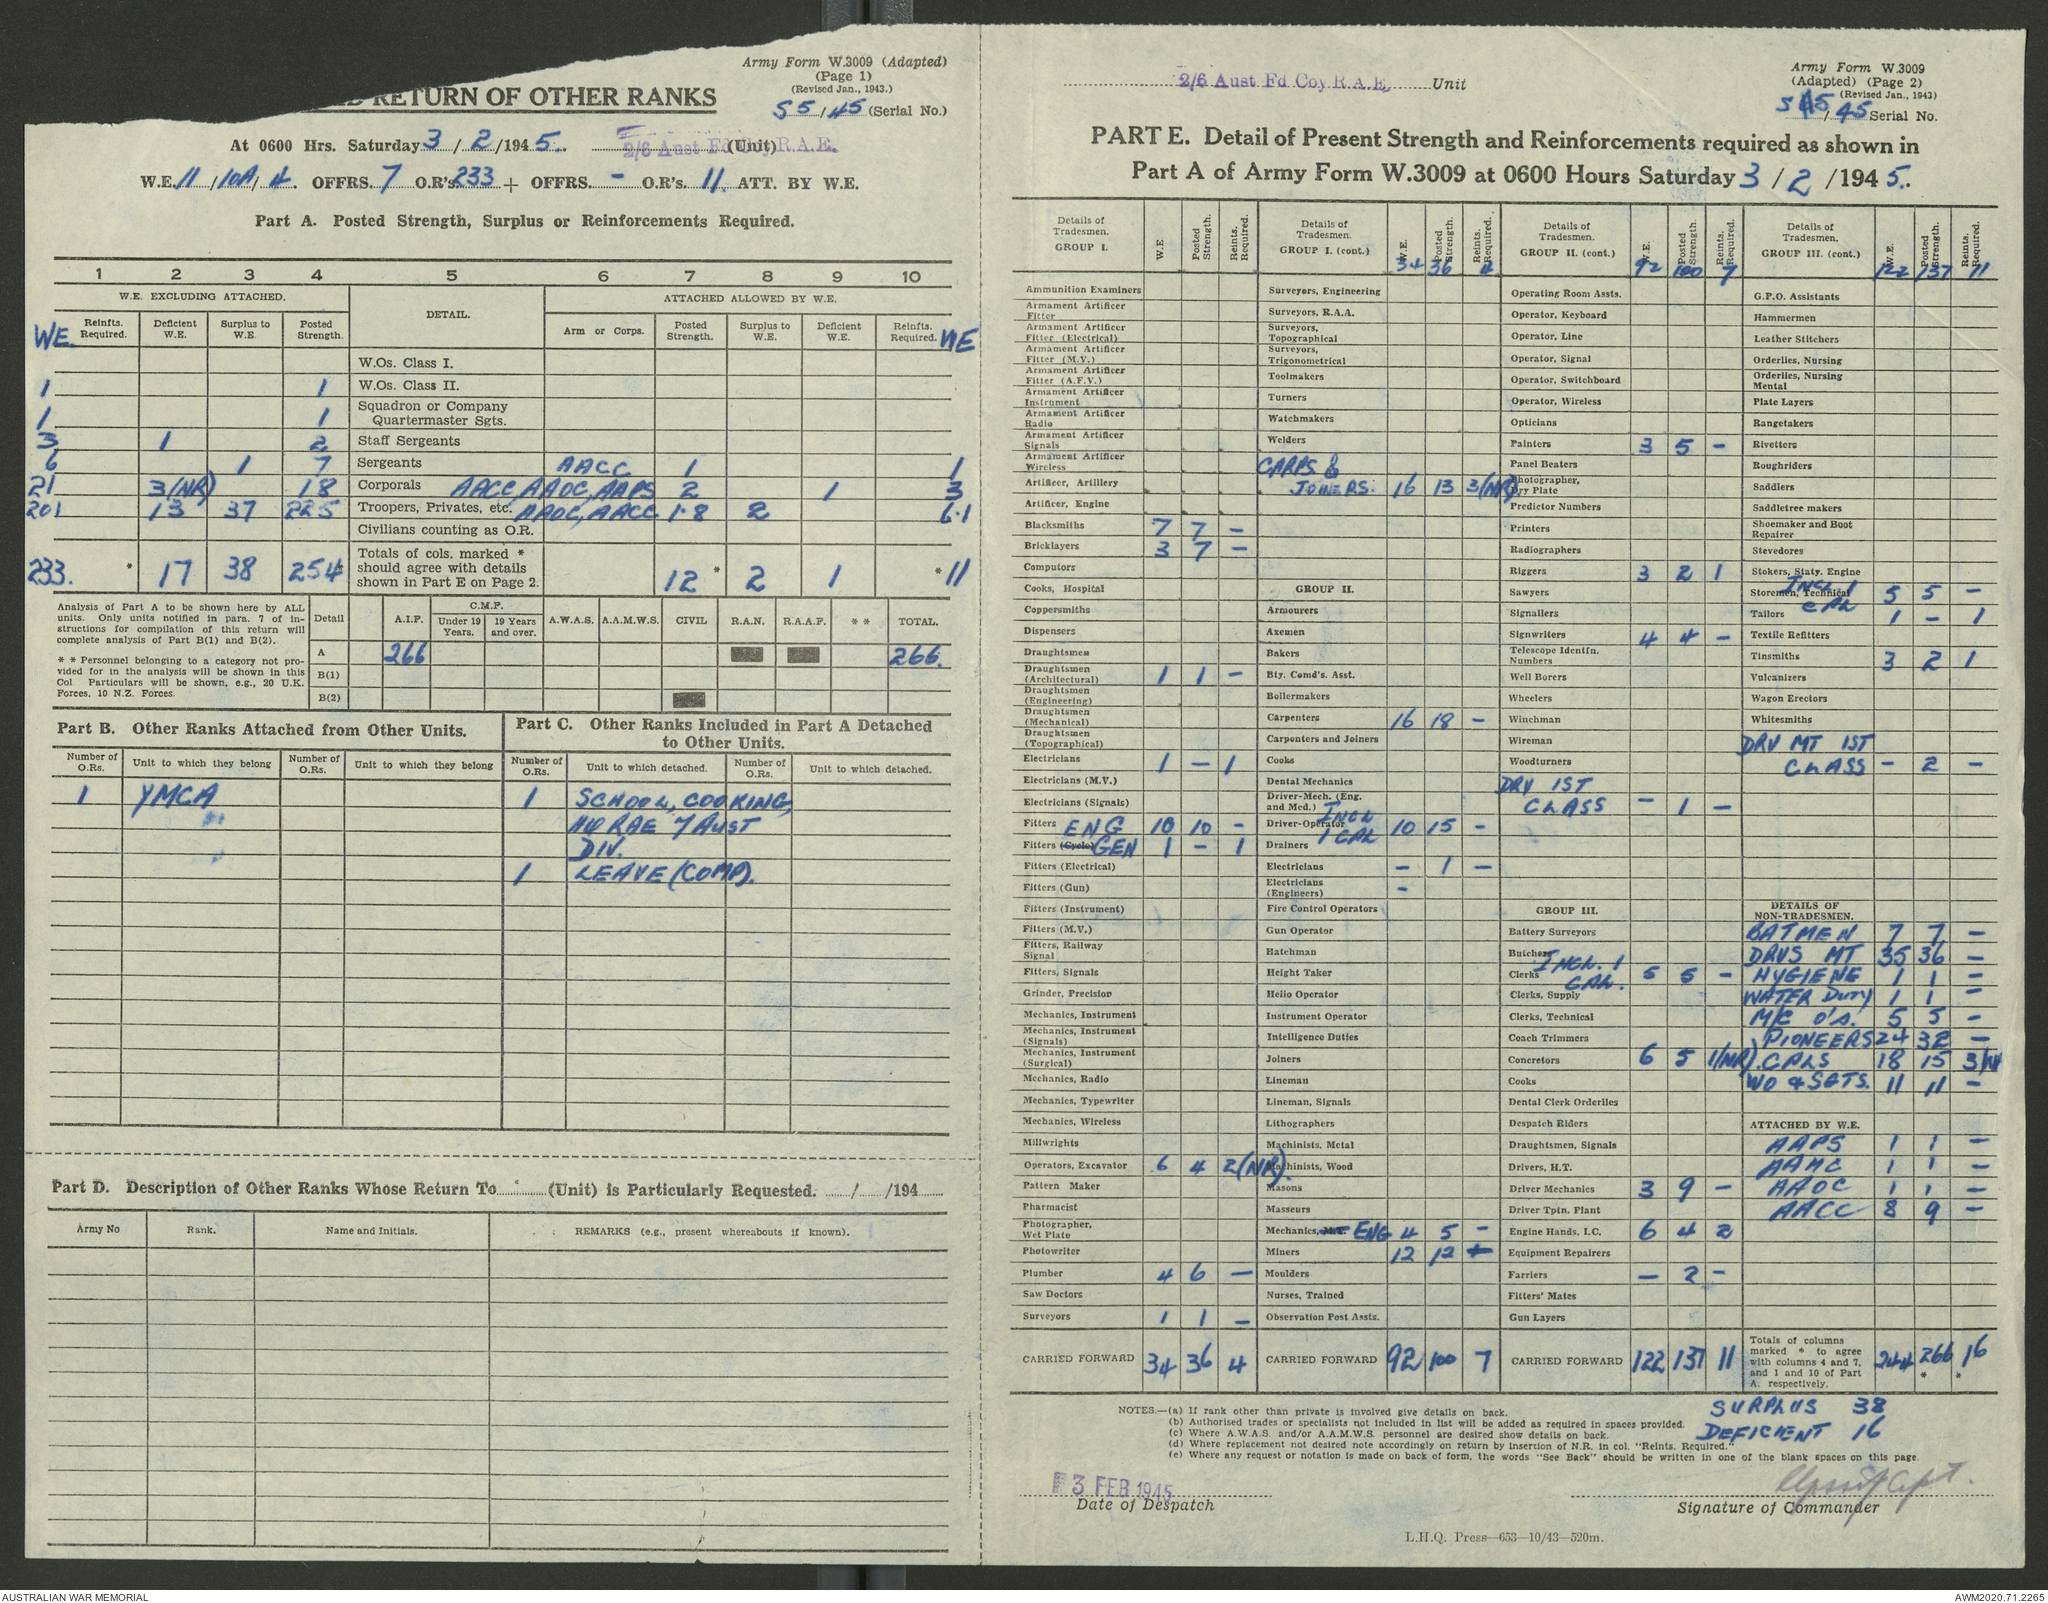 Army Form W.3009 (Adapted)
(Page 1)
(Revised Jan., 1943.)
55/45 (Serial No.)
RETURN OF OTHER RANKS
At 0600 Hrs. Saturday 3/2/1945. 2/6 Aust Fd Coy R.A.E. (Unit)
W.E. 11/10A/4. OFFRS. 7 O.R's. 233 + OFFRS. - O.R's. 11. ATT. BY W.E.
Part A. Posted Strength, Surplus or Reinforcements Required.
1 2 3 4 5 6 7 8 9 10
W.E. EXCLUDING ATTACHED. DETAIL. ATTACHED ALLOWED BY W.E.
WE Reinfts. Required. Deficient W.E. Surplus to W.E. Posted Strength. Arm or Corps. Posted Strength. Surplus to W.E. Deficient W.E. Reinfts. Required. WE
W.Os. Class I.
1 1 W.Os. Class II.
1 1 Squadron or Company Quartermaster Sgts.
3 1 2 Staff Sergeants
6 1 7 Sergeants AACC 1 1
21 3(NR) 18 Corporals AACC, AAOC, AAPS 2 1 3
201 13 37 225 Troopers, Privates, etc. AAOC, AACC 1·8 2 6·1
Civilians counting as O.R.
233. * 17 38 254* Totals of cols. marked * should agree with details shown in Part E on Page 2. 12* 2 1 * 11
Analysis of Part A to be shown here by ALL units. Only units notified in para. 7 of instructions for compilation of this return will complete analysis of Part B(1) and B(2).
* * Personnel belonging to a category not provided for in the analysis will be shown in this Col Particulars will be shown, e.g., 20 U.K. Forces, 10 N.Z. Forces.
Detail A.I.F. C.M.F. Under 19 Years. 19 Years and over. A.W.A.S. A.A.M.W.S. CIVIL R.A.N. R.A.A.F. * * TOTAL.
A 266 266.
B(1)
B(2)
Part B. Other Ranks Attached from Other Units.
Number of O.Rs. Unit to which they belong Number of O.Rs. Unit to which they belong
1 YMCA
Part C. Other Ranks Included in Part A Detached to Other Units.
Number of O.Rs. Unit to which detached. Number of O.Rs. Unit to which detached.
1 SCHOOL, COOKING,
HQ RAE 7 AUST
DIV.
1 LEAVE (COMP).
Part D. Description of Other Ranks Whose Return To (Unit) is Particularly Requested. / /194
Army No Rank. Name and Initials. REMARKS (e.g., present whereabouts if known).
2/6 Aust Fd Coy R.A.E. Unit
Army Form W.3009
(Adapted) (Page 2)
(Revised Jan., 1943)
/45 Serial No.
PART E. Detail of Present Strength and Reinforcements required as shown in
Part A of Army Form W.3009 at 0600 Hours Saturday 3/2/1945.
Details of Tradesmen. GROUP I. W.E. Posted Strength. Reints. Required.
Ammunition Examiners
Armament Artificer Fitter
Armament Artificer Fitter (Electrical)
Armament Artificer Fitter (M.V.)
Armament Artificer Fitter (A.F.V.)
Armament Artificer Instrument
Armament Artificer Radio
Armament Artificer Signals
Armament Artificer Wireless
Artificer, Artillery
Artificer, Engine
Blacksmiths 7 7 -
Bricklayers 3 7 -
Computors
Cooks, Hospital
Coppersmiths
Dispensers
Draughtsmen
Draughtsmen (Architectural) 1 1 -
Draughtsmen (Engineering)
Draughtsmen (Mechanical)
Draughtsmen (Topographical)
Electricians 1 - 1
Electricians (M.V.)
Electricians (Signals)
Fitters ENG 10 10 -
Fitters (Cycle) GEN 1 - 1
Fitters (Electrical)
Fitters (Gun)
Fitters (Instrument)
Fitters (M.V.)
Fitters, Railway Signal
Fitters, Signals
Grinder, Precision
Mechanics, Instrument
Mechanics, Instrument (Signals)
Mechanics, Instrument (Surgical)
Mechanics, Radio
Mechanics, Typewriter
Mechanics, Wireless
Millwrights
Operators, Excavator 6 4 2(NR)
Pattern Maker
Pharmacist
Photographer, Wet Plate
Photowriter
Plumber 4 6 -
Saw Doctors
Surveyors 1 1 -
CARRIED FORWARD 34 36 4
Details of Tradesmen. GROUP I. (cont.) W.E. Posted Strength. Reints. Required.
34 36 4
Surveyors, Engineering
Surveyors, R.A.A.
Surveyors, Topographical
Surveyors, Trigonometrical
Toolmakers
Turners
Watchmakers
Welders
CARPS &
JOINERS. 16 13 3(NR)
GROUP II.
Armourers
Axemen
Bakers
Bty. Comd's. Asst.
Boilermakers
Carpenters 16 18 -
Carpenters and Joiners
Cooks
Dental Mechanics
Driver-Mech. (Eng. and Med.)
Driver-Operator INCL 1 CAL 10 15 -
Drainers
Electricians - 1 -
Electricians (Engineers) -
Fire Control Operators
Gun Operator
Hatchman
Height Taker
Helio Operator
Instrument Operator
Intelligence Duties
Joiners
Lineman
Lineman, Signals
Lithographers
Machinists, Metal
Machinists, Wood
Masons
Masseurs
Mechanics, ENG 4 5 -
Miners 12 12 -
Moulders
Nurses, Trained
Observation Post Assts.
CARRIED FORWARD 92 100 7
Details of Tradesmen. GROUP II. (cont.) W.E. Posted Strength. Reints. Required.
92 100 7
Operating Room Assts.
Operator, Keyboard
Operator, Line
Operator, Signal
Operator, Switchboard
Operator, Wireless
Opticians
Painters 3 5 -
Panel Beaters
Photographer, Dry Plate
Predictor Numbers
Printers
Radiographers
Riggers 3 2 1
Sawyers
Signallers
Signwriters 4 4 -
Telescope Identfn. Numbers
Well Borers
Wheelers
Winchman
Wireman
Woodturners
DRV 1ST
CLASS - 1 -
GROUP III.
Battery Surveyors
Butchers
Clerks INCL. 1 CAL. 5 5 -
Clerks, Supply
Clerks, Technical
Coach Trimmers
Concretors 6 5 1(NR)
Cooks
Dental Clerk Orderlies
Despatch Riders
Draughtsmen, Signals
Drivers, H.T.
Driver Mechanics 3 9 -
Driver Tptn. Plant
Engine Hands, I.C. 6 4 2
Equipment Repairers
Farriers - 2 -
Fitters' Mates
Gun Layers
CARRIED FORWARD 122 137 11
Details of Tradesmen. GROUP III. (cont.) W.E. Posted Strength. Reints. Required.
122 137 11
G.P.O. Assistants
Hammermen
Leather Stitchers
Orderlies, Nursing
Orderlies, Nursing Mental
Plate Layers
Rangetakers
Rivetters
Roughriders
Saddlers
Saddletree makers
Shoemaker and Boot Repairer
Stevedores
Stokers, Staty. Engine
Storemen, Technical INCL 1 CAL 5 5 -
Tailors 1 - 1
Textile Refitters
Tinsmiths 3 2 1
Vulcanizers
Wagon Erectors
Whitesmiths
DRV MT 1ST
CLASS - 2 -
DETAILS OF NON-TRADESMEN.
BATMEN 7 7 -
DRVS MT 35 36 -
HYGIENE 1 1 -
WATER DUTY 1 1 -
M/C O's. 5 5 -
PIONEERS 24 32 -
CPLS 18 15 3/N
WO & SGTS. 11 11 -
ATTACHED BY W.E.
AAPS 1 1 -
AAMC 1 1 -
AAOC 1 1 -
AACC 8 9 -
Totals of columns marked * to agree with columns 4 and 7, and 1 and 10 of Part A. respectively. 244 266* 16*
NOTES.—(a) If rank other than private is involved give details on back.
(b) Authorised trades or specialists not included in list will be added as required in spaces provided.
(c) Where A.W.A.S. and/or A.A.M.W.S. personnel are desired show details on back.
(d) Where replacement not desired note accordingly on return by insertion of N.R. in col. "Reints. Required."
(e) Where any request or notation is made on back of form, the words "See Back" should be written in one of the blank spaces on this page.
SURPLUS 38
DEFICIENT 16
3 FEB 1945
Date of Despatch
Capt.
Signature of Commander
L.H.Q. Press—653—10/43—520m.
AUSTRALIAN WAR MEMORIAL
AWM2020.71.2265